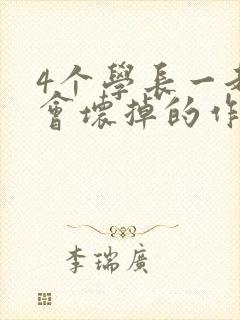 4个學長一
會壞掉的作
李瑞廣